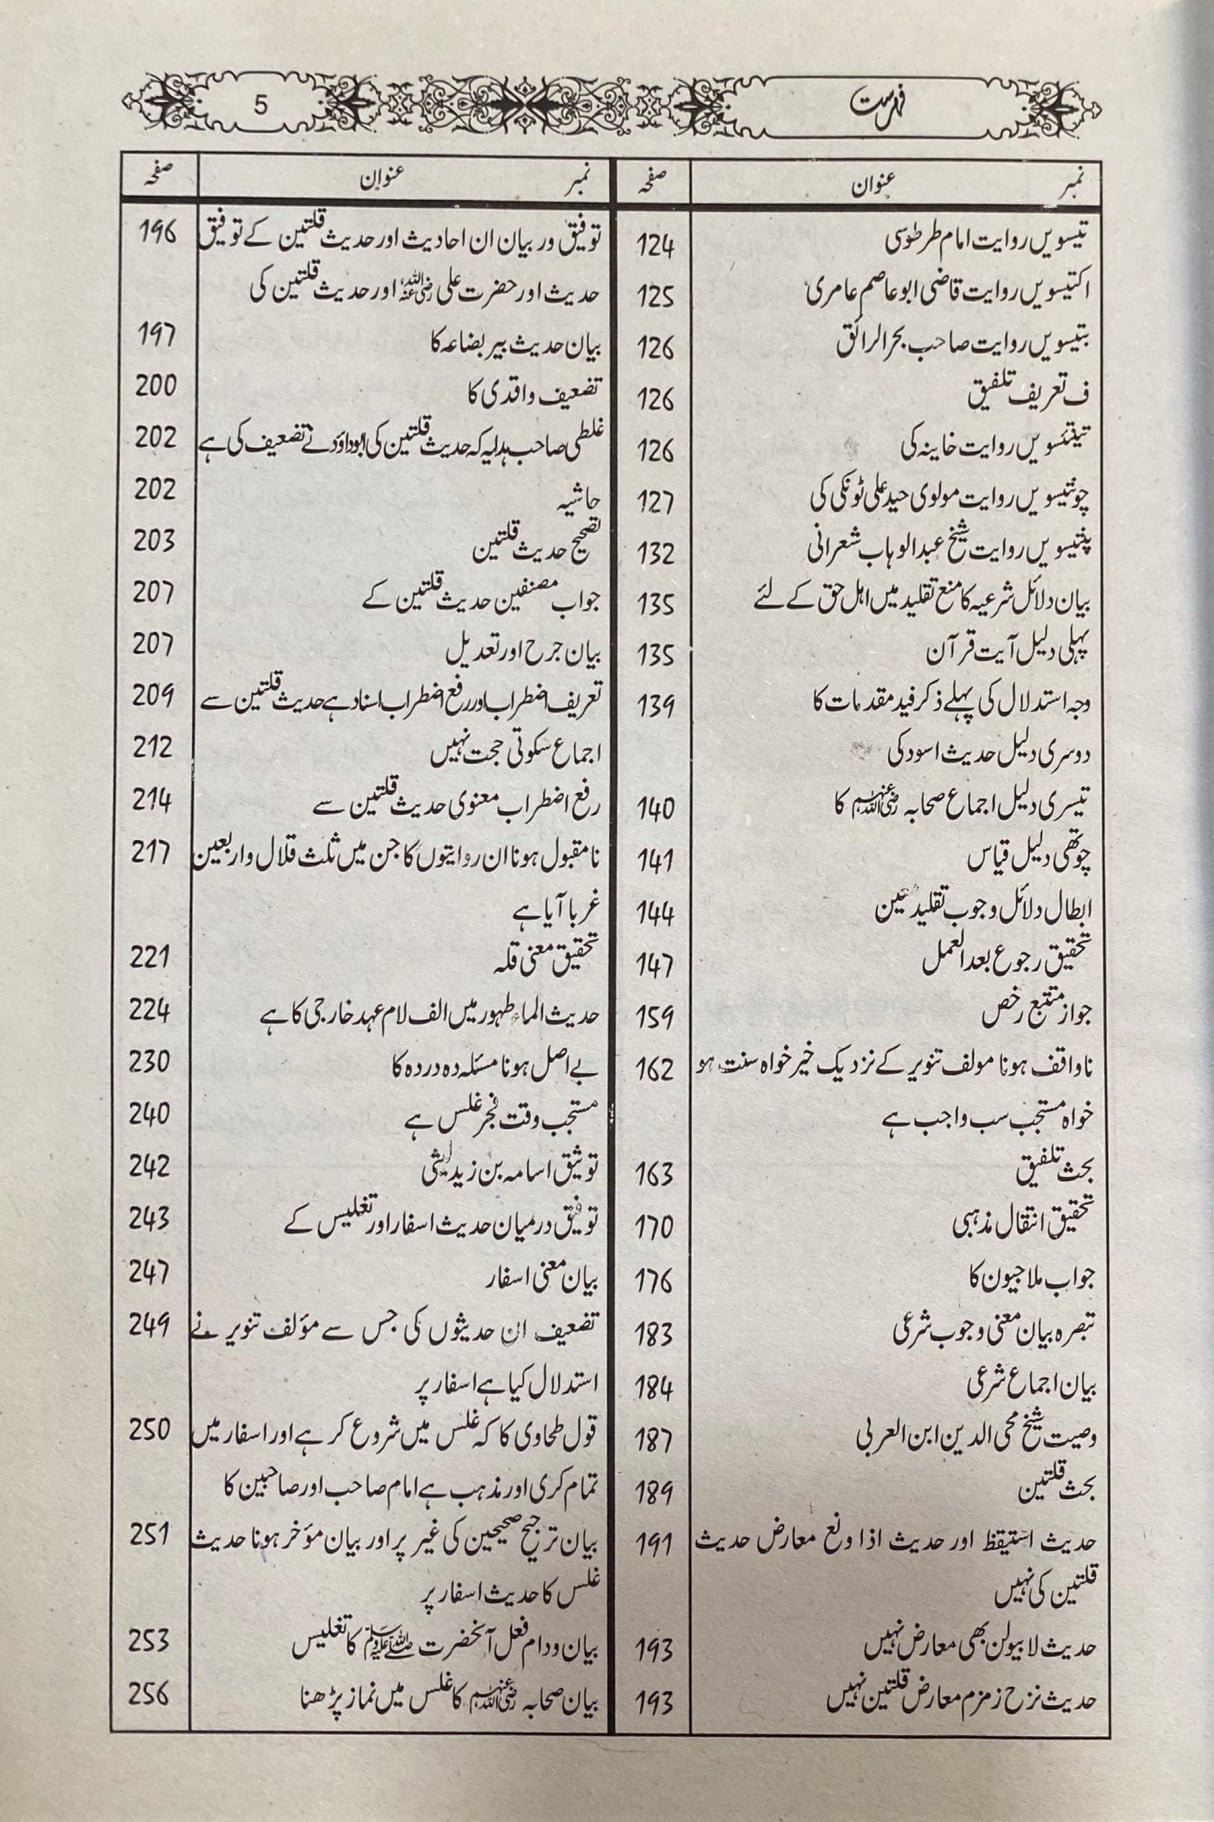 فہرست
5
نمبر عنوان صفحہ
تیسویں روایت امام طرطوسی 124
اکتیسویں روایت قاضی ابو عاصم عامری 125
بتیسویں روایت صاحب بحر الرائق 126
ف تعریف تلفیق 126
تیتئسویں روایت خاینہ کی 126
چونتیسویں روایت مولوی حید علی ٹونکی کی 127
پنتیسویں روایت شیخ عبد الوہاب شعرانی 132
بیان دلائل شرعیہ کا منع تقلید میں اہل حق کے لئے 135
پہلی دلیل آیت قرآن 135
وجہ استدلال کی پہلے ذکر فید مقدمات کا 139
دوسری دلیل حدیث اسود کی
تیسری دلیل اجماع صحابہ رضی اللہ عنہم کا 140
چوتھی دلیل قیاس 141
ابطال دلائل وجوب تقلید عین 144
تحقیق رجوع بعد العمل 147
جواز متتبع رخص 159
ناواقف ہونا مولف تنویر کے نزدیک خیر خواہ سنت ہو 162
خواہ مستحب سب واجب ہے
بحث تلفیق 163
تحقیق انتقال مذہبی 170
جواب ملا جیون کا 176
تبصرہ بیان معنی وجوب شرعی 183
بیان اجماع شرعی 184
وصیت شیخ محی الدین ابن العربی 187
بحث قلتین 189
حدیث استیقظ اور حدیث اذا ونع معارض حدیث 191
قلتین کی نہیں
حدیث لا یبولن بھی معارض نہیں 193
حدیث نزح زمزم معارض قلتین نہیں 193
نمبر عنوان صفحہ
توفیق ور بیان ان احادیث اور حدیث قلتین کے توفیق 196
حدیث اور حضرت علی رضی اللہ عنہ اور حدیث قلتین کی
بیان حدیث بیر بضاعہ کا 197
تضعیف واقدی کا 200
غلطی صاحب ہدایہ کہ حدیث قلتین کی ابوداؤد نے تضعیف کی ہے 202
حاشیہ 202
تصحیح حدیث قلتین 203
جواب مصنفین حدیث قلتین کے 207
بیان جرح اور تعدیل 207
تعریف اضطراب اور رفع اضطراب اسناد ہے حدیث قلتین سے 209
اجماع سکوتی حجت نہیں 212
رفع اضطراب معنوی حدیث قلتین سے 214
نامقبول ہونا ان روایتوں کا جن میں ثلث قلال واربعین 217
غربا آیا ہے
تحقیق معنی قلہ 221
حدیث الماء طہور میں الف لام عہد خارجی کا ہے 224
بے اصل ہونا مسئلہ دہ در دہ کا 230
مستحب وقت فجر غلس ہے 240
توثیق اسامہ بن زید لیثی 242
توفیق درمیان حدیث اسفار اور تغلیس کے 243
بیان معنی اسفار 247
تضعیف ان حدیثوں کی جس سے مؤلف تنویر نے 249
استدلال کیا ہے اسفار پر
قول طحاوی کا کہ غلس میں شروع کر ہے اور اسفار میں 250
تمام کری اور مذہب ہے امام صاحب اور صاحبین کا
بیان ترجیح صحیحین کی غیر پر اور بیان مؤخر ہونا حدیث 251
غلس کا حدیث اسفار پر
بیان ودام فعل آنحضرت صلی اللہ علیہ وسلم کا تغلیس 253
بیان صحابہ رضی اللہ عنہم کا غلس میں نماز پڑھنا 256